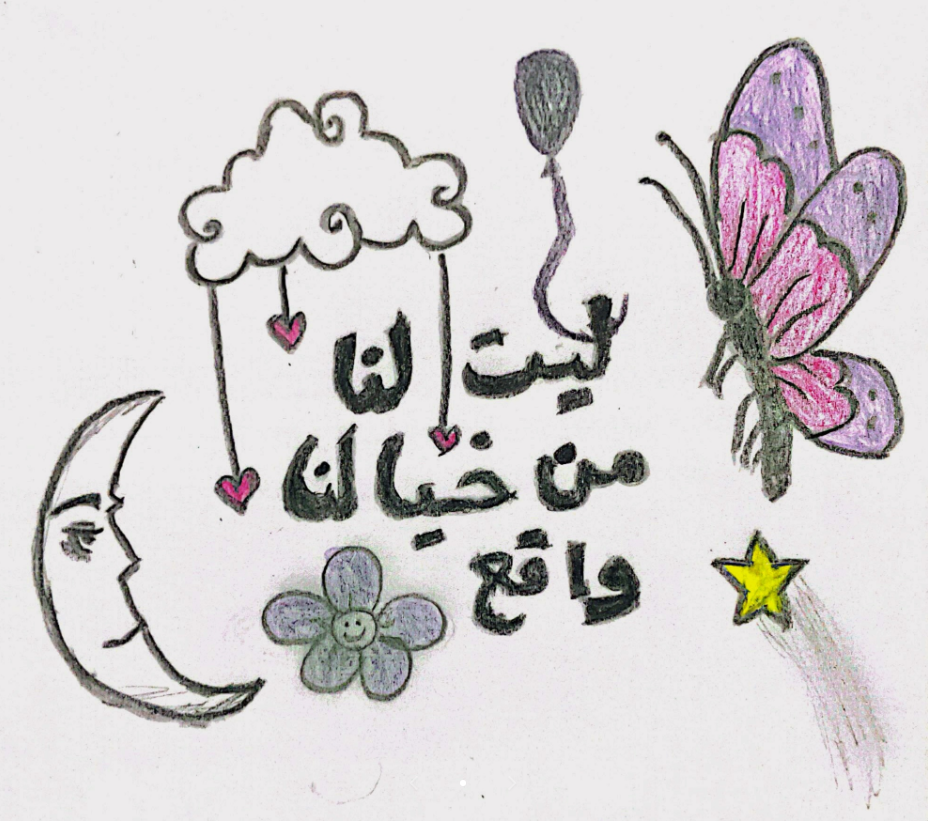 ليت لنا
من خيالنا
واقع